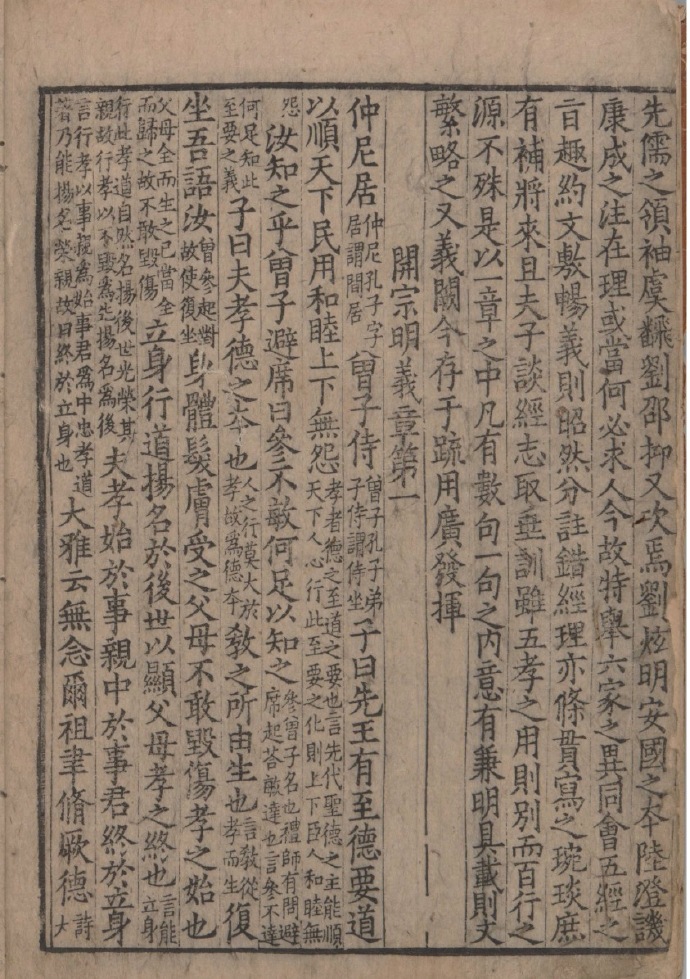 先儒之領袖虞飜劉邵抑又次焉劉炫明安國之本陸澄譏
康成之注在理或當何必求人今故特舉六家之異同會五經之
旨趣約文敷暢義則昭然分註錯經理亦條貫寫之琬琰庶
有補將來且夫子談經志取垂訓雖五孝之用則別而百行之
源不殊是以一章之中凡有數句一句之內意有兼明具載則文
繁略之又義闕今存于疏用廣發揮
開宗明義章第一
仲尼居仲尼孔子字居謂閒居曾子侍曾子孔子弟子侍謂侍坐子曰先王有至德要道
以順天下民用和睦上下無怨孝者德之至道之要也言先代聖德之主能順天下人心行此至要之化則上下臣人和睦無怨
汝知之乎曾子避席曰參不敏何足以知之參曾子名也禮師有問避席起荅敏達也言參不達何足知此至要之義
子曰夫孝德之本也人之行莫大於孝故為德本教之所由生也言教從孝而生復
坐吾語汝曾參起對故使復坐身體髮膚受之父母不敢毀傷孝之始也
父母全而生之己當全而歸之故不敢毀傷立身行道揚名於後世以顯父母孝之終也言能立身
行此孝道自然名揚後世光榮其親故行孝以不毀為先揚名為後夫孝始於事親中於事君終於立身
言行孝以事親為始事君為中忠孝道著乃能揚名榮親故曰終於立身也大雅云無念爾祖聿脩厥德詩大